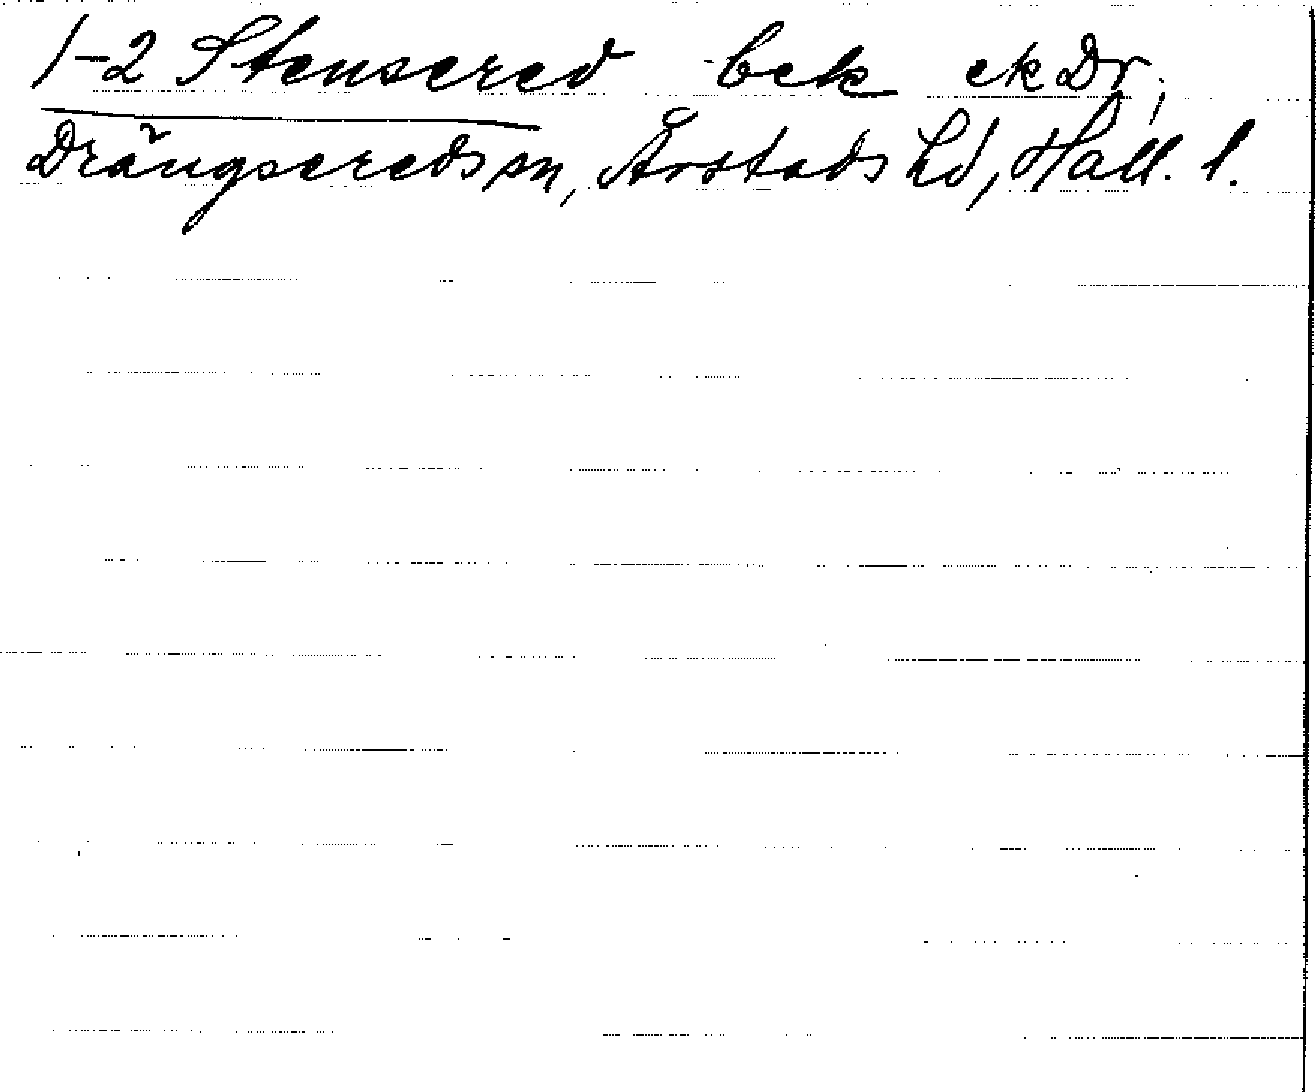 1-2 Stensered bek ek Dr,
Drängsereds sn, Årstads hd, Hall. l.